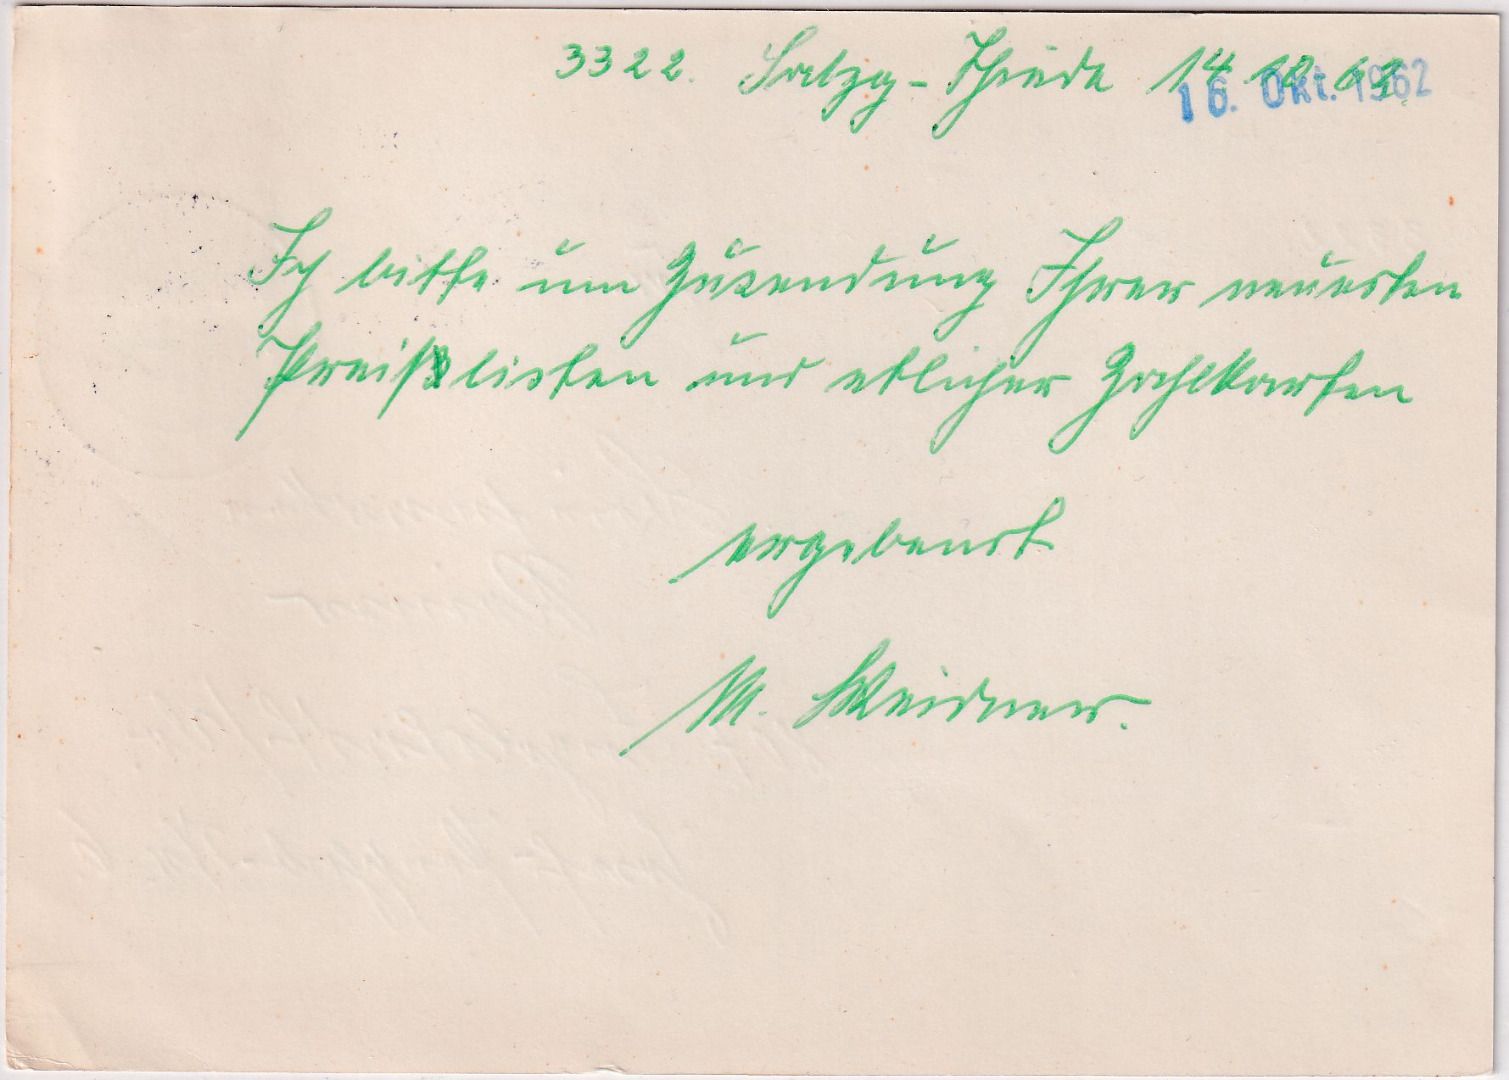 3322. Salzg-Thiede 14.10.62.
16. Okt. 1962
Ich bitte um Zusendung Ihrer neuesten
Preislisten und etlicher Zahlkarten
ergebenst
M. Weidner.